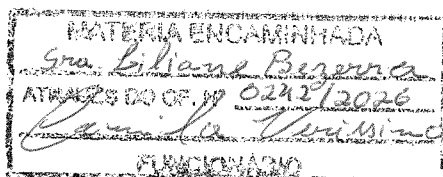 MATERIA ENCAMINHADA
Sra. Liliane Bezerra
ATRAVES DO OF. Nº 0242/2026
Camila Verissimo
FUNCIONARIO